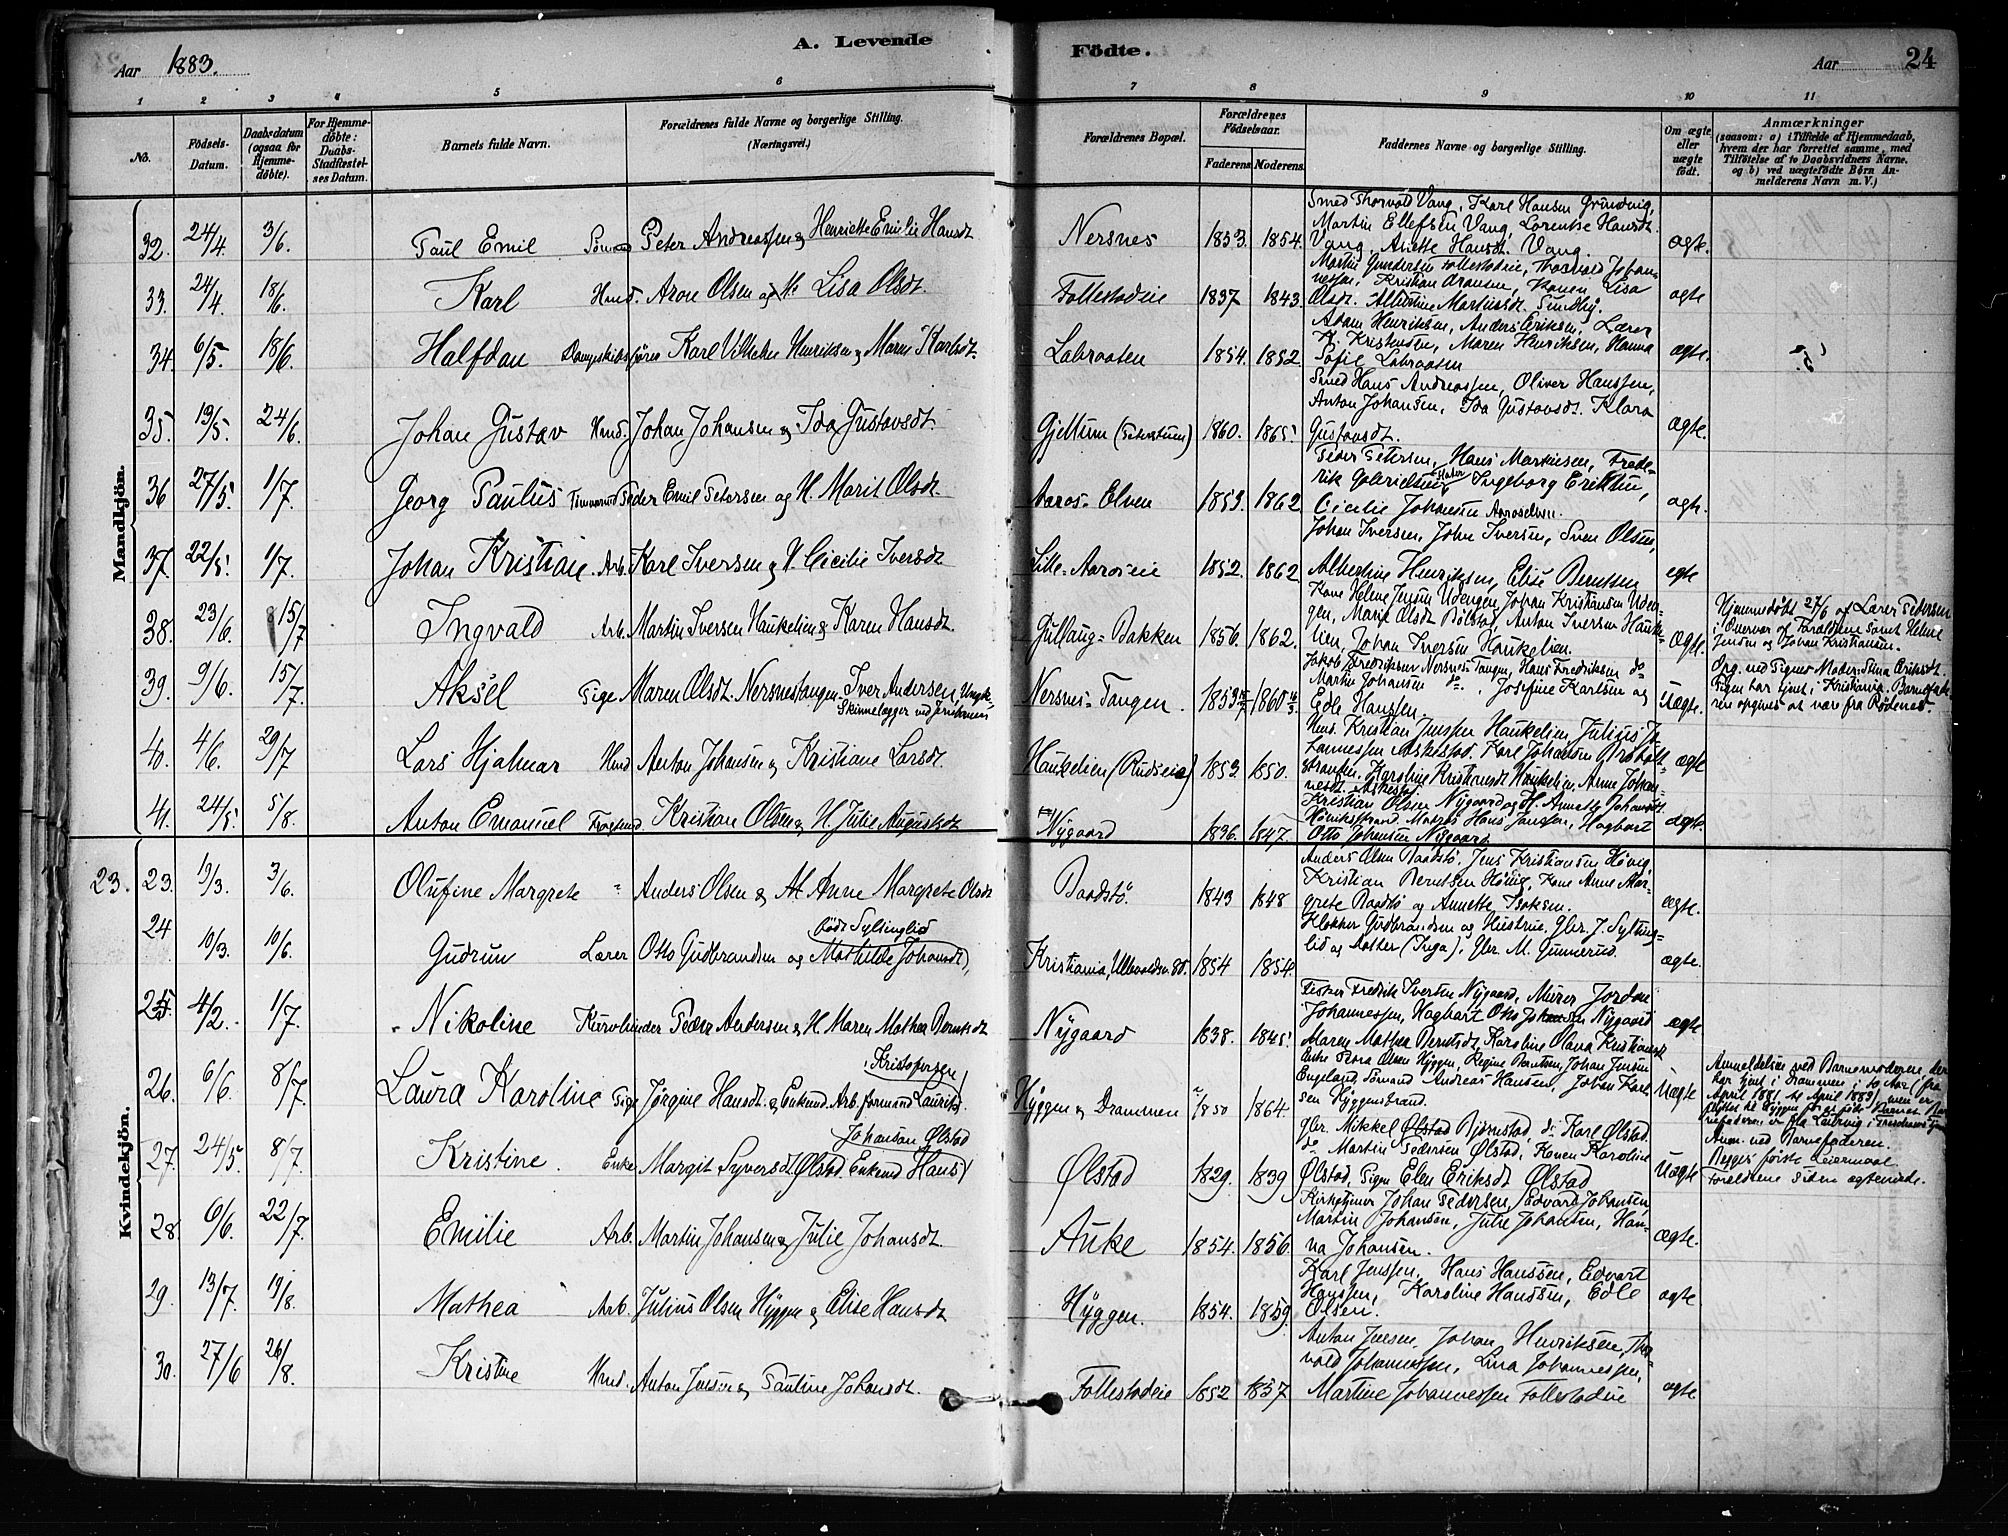 Aar 1883.
A. Levende
Födte.
Aar
24
1 2 3 4 5 6 7 8 9 10 11
No.
Födsels-Datum.
Daabsdatum (ogsaa for Hjemme-döbte).
For Hjemme-döbte: Daabs-Stadfæstelses Datum.
Barnets fulde Navn.
Forældrenes fulde Navne og borgerlige Stilling. (Næringsvei.)
Forældrenes Bopæl.
Forældrenes Födselsaar.
Faderens. Moderens.
Faddernes Navne og borgerlige Stilling.
Om ægte eller uægte födt.
Anmærkninger
(saasom: a) i Tilfælde af Hjemmedaab, hvem der har forrettet samme, med Tilföielse af to Daabsvidners Navne, og b) ved uægtefödte Börn Anmelderens Navn m. V.)
Mandkjön.
32. 24/4 3/6. Paul Emil Sømand Peter Andreassen & Henriette Emilie Hansdt Nersnes 1853. 1854. Smed Thorvald Vang, Karl Hansen Grundvig,
Martin Ellefsen Vang, Lorentse Hansdt.
Vang, Anette Hansdt. Vang. ægte.
33. 24/4 18/6. Karl Hmd. Aron Olsen og H. Lisa Olsdt. Follestadeie 1837 1843. Martin Gundersen Follestadeie, Thorvald Johan-
nessen, Kristian Aronsen, Konen Lisa
Olsdt. Albertine Martinsdt. Sundby. ægte
34. 6/5 18/6. Halfdan Dampskibsfører Karl Vilhelm Henriksen & Maren Karlsdt Labraaten 1854. 1852. Adam Henriksen, Anders Eriksen, Lærer
K. Kristensen, Maren Henriksen, Hanna
Sofie Labraaten ægte.
35. 13/5. 24/6. Johan Gustav Hmd. Johan Johansen & Ida Gustavsdt Gjellum 1860. 1865. Smed Hans Andreassen, Oliver Hanssen,
Anton Johansen, Ida Gustavsdt. Klara
Gustavsdt. ægte.
36 27/5 1/7. Georg Paulus Tømmermd Peder Emil Petersen og H. Marit Olsdt. Aaros-Elven 1853. 1862 Peder Petersen, Hans Martinsen, Frede-
rik Gabrielsen, Ingeborg Eriksen,
Cicilie Johansen Aaroselven. ægte.
37. 22/5. 1/7. Johan Kristian Arb. Karl Iversen & H. Cicilie Iversdt Lille-Aaroseie 1852. 1862 Johan Iversen, John Iversen, Sven Olsen,
Albertine Henriksen, Elise Berntsen egte
38. 23/6. 15/7 Ingvald Arb. Martin Iversen Haukelien & Karen Hansdt. Gullaug-Bakken 1856. 1862. Kone Helene Jensen Udengen, Johan Kristiansen Uden-
gen, Marit Olsdt Bølstad, Anton Iversen Hauke-
lien, Johan Iversen Haukelien. Ægte. Hjemmedøbt 27/6 af Lærer Pedersen
i Overvær af Forældrene samt Helene
Jensen og Johan Kristiansen.
39. 9/6. 15/7 Aksel Pige Maren Olsdt. Nersnestangen. Iver Andersen, Ungk.
Skinnelægger ved Jernbanen Nersnes-Tangen. 1853 1860 Jakob Fredriksen Nersnes-Tangen, Hans Fredriksen do
Martin Johansen do. Josefine Karlsen og
Edle Hanssen. Uægte. Opg. ved Pigens Moder: Stina Eriksdt.
Pigen har tjent i Kristiania. Barnefade-
ren opgives at være fra Rødenes.
40. 4/6. 29/7 Lars Hjalmar Hmd Anton Johansen & Kristiane Larsdt. Haukelien (Rudseie) 1853. 1850. Hmd. Kristian Jenssen Haukelien, Julius Jo-
hannessen Askestad, Karl Johansen
Karoline Kristiansdt Haukelien, Anne Johan-
nesdt. Askestad ægte
41. 24/5. 5/8. Anton Emanuel Fragtemd Kristian Olsen & H. Julie Augustdt Nygaard 1836. 1847. Kristian Olsen Nygaard og H. Annette Johansdt
Matros Hans Janssen, Hagbart
Otto Johansen Nygaard. ægte.
Kvindekjön.
23. 23. 19/3. 3/6. Olufine Margrete " Anders Olsen & H. Anne Margrete Olsdt Baadstø. 1843 1848 Anders Olsen Baadstø, Jens Kristiansen Høvig,
Kristian Berntsen Høvig, Kone Anne Mar-
grete Baadstø og Annette Isaksen. ægte.
24 10/3. 10/6. Gudrun Lærer Otto Gudbrandsen og Mathilde Johansdt, født Syltinglid Kristiania, Ullevoldsv. 80. 1854 1854. Klokker Gudbrandsen og Hustrue, Gbr. J. Sylting-
lid og Datter (Inga), Gbr. M. Gunnerud. ægte.
25 4/2. 1/7. Nikoline Kurvbinder Peder Andersen & H. Maren Mathea Berntsdt Nygaard 1838. 1845. Fisker Fredrik Iversen Nygaard, Murer Jordan
Johannessen, Hagbart Otto Johansen Nygaard
Maren Mathea Berntsdt, Karoline Olava Kristiansdt ægte
26. 6/6. 8/7. Laura Karoline Pige Jørgine Hansdt. & Enkemd. Arb.formand Laurits Kristofersen Hyggen & Drammen 1850 1864. Enke Thora Olsen Hyggen, Regine Berntsen, Johan Jensen
Engeland, Sømand Andreas Hansen, Johan Karl-
sen Hyggenstrand. Uægte Anmeldelsen ved Barnemoderen, der
har tjent i Drammen i to Aar (fra
April 1881 til April 1883) men er
flyttet til Hyggen
27. 24/5. 8/7. Kristine. Enke Margit Syversdt Ølstad, Enkemd Hans Johansen Ølstad Ølstad 1829. 1839 Gbr. Mikkel Ølstad Bjørnstad, do Karl Ølstad.
do Martin Pedersen Ølstad, Konen Karoline
Ølstad. Pigen Elen Eriksdt Ølstad Uægte Anm. ved Barnefaderen.
Begges første Leiermaal.
Forældrene siden ægteviede.
28. 6/6. 22/7. Emilie Arb. Martin Johansen & Julie Johansdt. Auke 1854. 1856. Kirketjener Johan Pedersen, Edvard Johansen,
Martin Johansen, Julie Johansen, Han-
na Johansen. ægte.
29. 13/7. 19/8. Mathea Arb. Julius Olsen Hyggen & Elise Hansdt Hyggen. 1854. 1859. Karl Jenssen, Hans Hanssen, Edvart
Hanssen, Karoline Hanssen, Edle
Olsen. ægte
30. 27/6 26/8. Kristine Hmd. Anton Jensen & Pauline Johansdt. Follestadeie 1852 1857 Anton Jensen, Johan Henriksen, Thor-
vald Johannessen, Lina Johannessen,
Martine Johannessen Follestadeie ægte